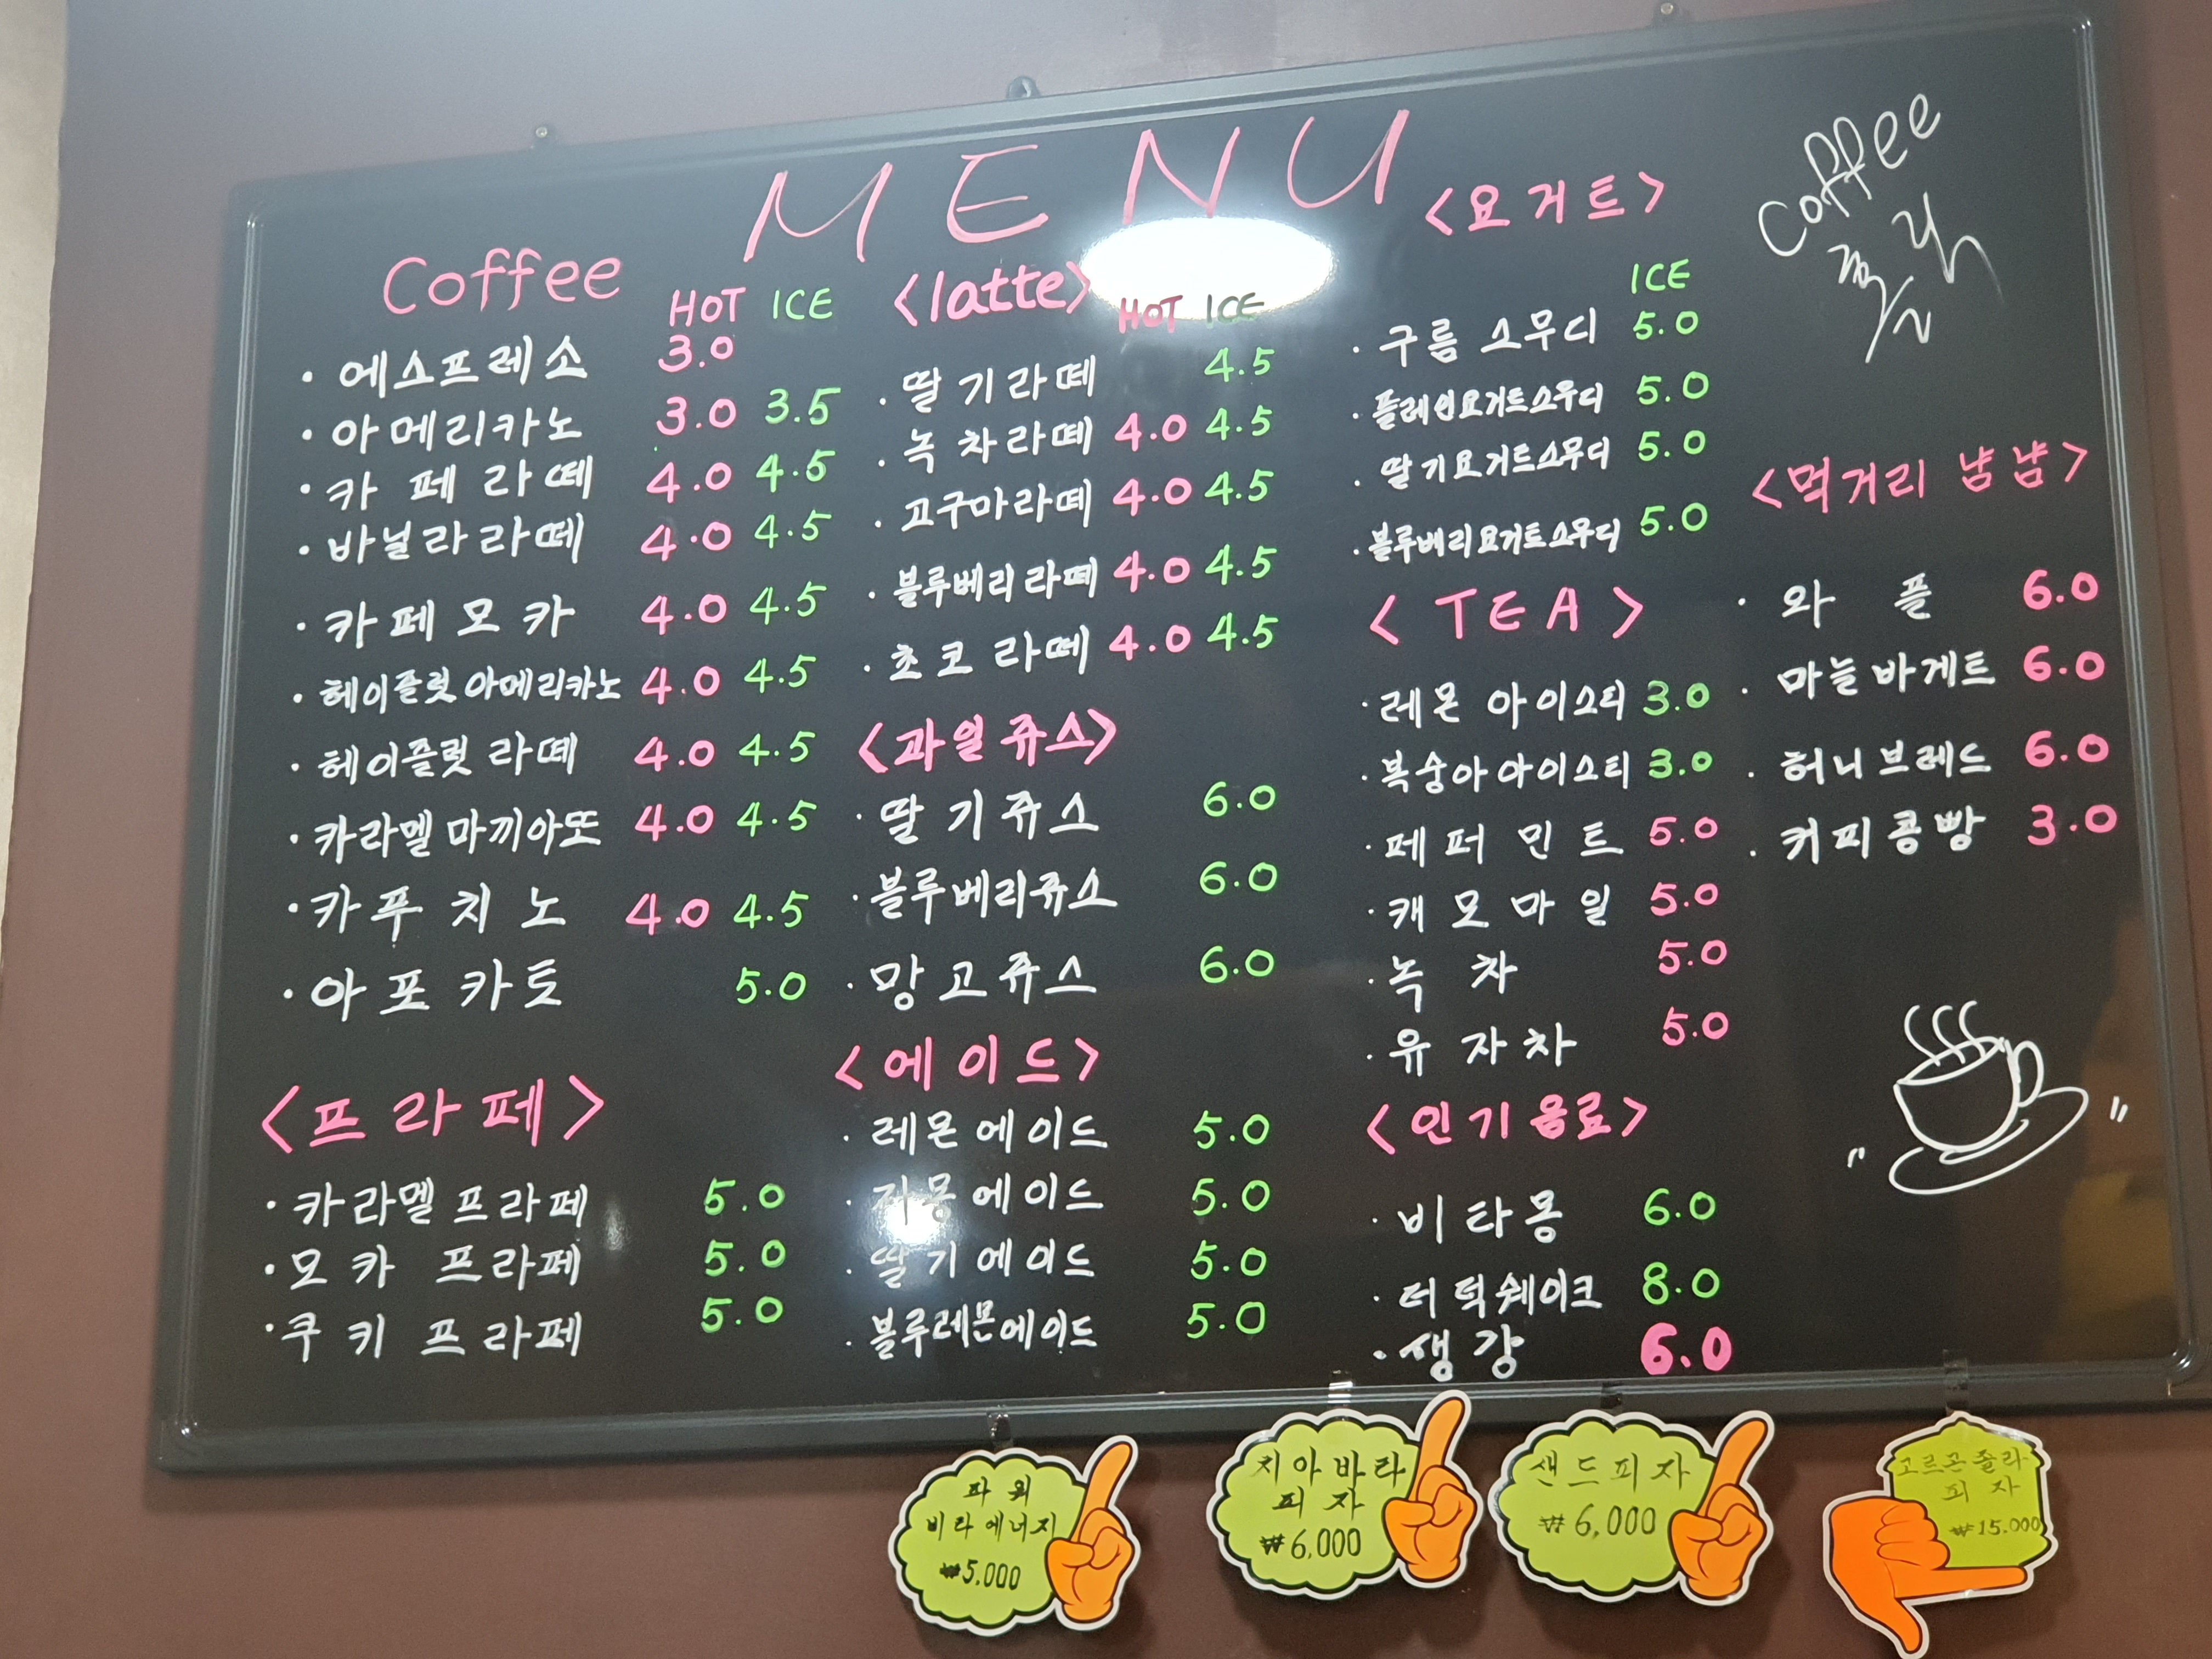 MENU
Coffee
HOT ICE
· 에스프레소 3.0
· 아메리카노 3.0 3.5
· 카페라떼 4.0 4.5
· 바닐라라떼 4.0 4.5
· 카페모카 4.0 4.5
· 헤이즐럿 아메리카노 4.0 4.5
· 헤이즐럿 라떼 4.0 4.5
· 카라멜 마끼아또 4.0 4.5
· 카푸치노 4.0 4.5
· 아포카토 5.0
<프라페>
· 카라멜 프라페 5.0
· 모카 프라페 5.0
· 쿠키 프라페 5.0
<latte>
HOT ICE
· 딸기라떼 4.5
· 녹차라떼 4.0 4.5
· 고구마라떼 4.0 4.5
· 블루베리라떼 4.0 4.5
· 초코라떼 4.0 4.5
<과일쥬스>
· 딸기쥬스 6.0
· 블루베리쥬스 6.0
· 망고쥬스 6.0
<에이드>
· 레몬에이드 5.0
· 자몽에이드 5.0
· 딸기에이드 5.0
· 블루레몬에이드 5.0
<요거트>
ICE
· 구름 스무디 5.0
· 플레인요거트스무디 5.0
· 딸기요거트스무디 5.0
· 블루베리요거트스무디 5.0
<TEA>
· 레몬 아이스티 3.0
· 복숭아아이스티 3.0
· 페퍼민트 5.0
· 캐모마일 5.0
· 녹차 5.0
· 유자차 5.0
<인기음료>
· 비타몽 6.0
· 더턱쉐이크 8.0
· 생강 6.0
Coffee
<먹거리 냠냠>
· 와플 6.0
· 마늘바게트 6.0
· 허니브레드 6.0
· 커피콩빵 3.0
파워
비라에너지
₩5,000
치아바타
피자
₩6,000
샌드피자
₩6,000
고르곤졸라
피자
₩15.000